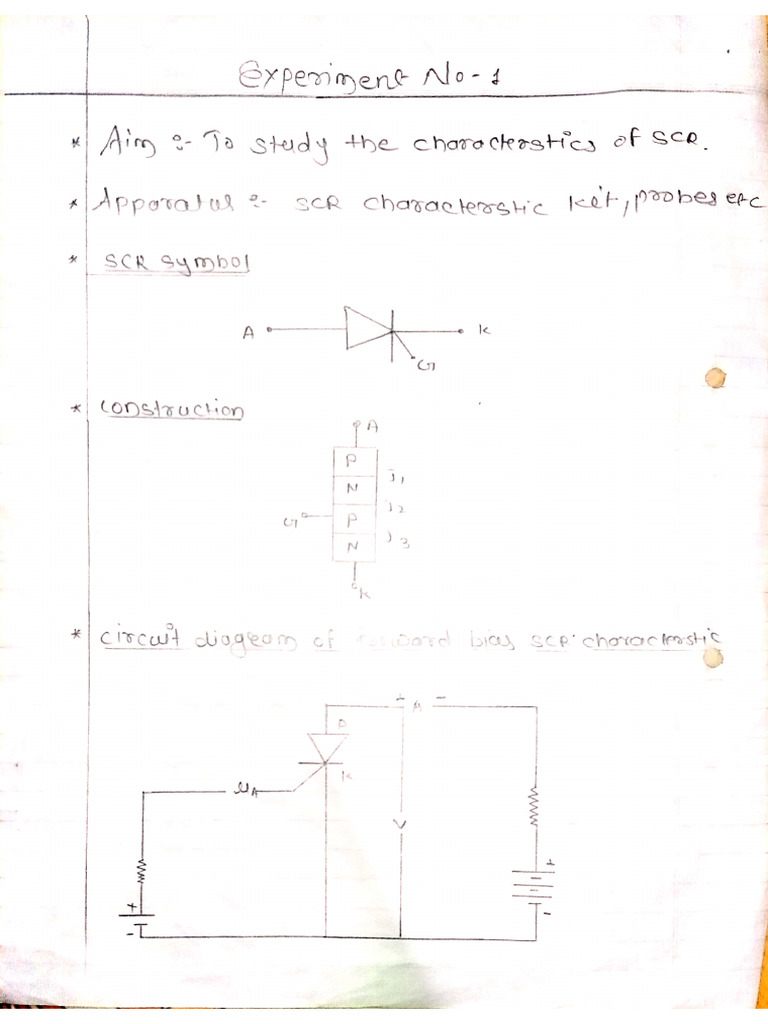 Experiment No-1
* Aim :- To study the charactersticsof SCR.
* Apparatus :- SCR characterstic kit, probes etc
* SCR symbol
A K
G
* construction
A
P
J1
N
J2
G P
J3
N
K
* circuit diagram of forward bias SCR characterstic
+ A -
A
K
μA
V
+
+
-
-